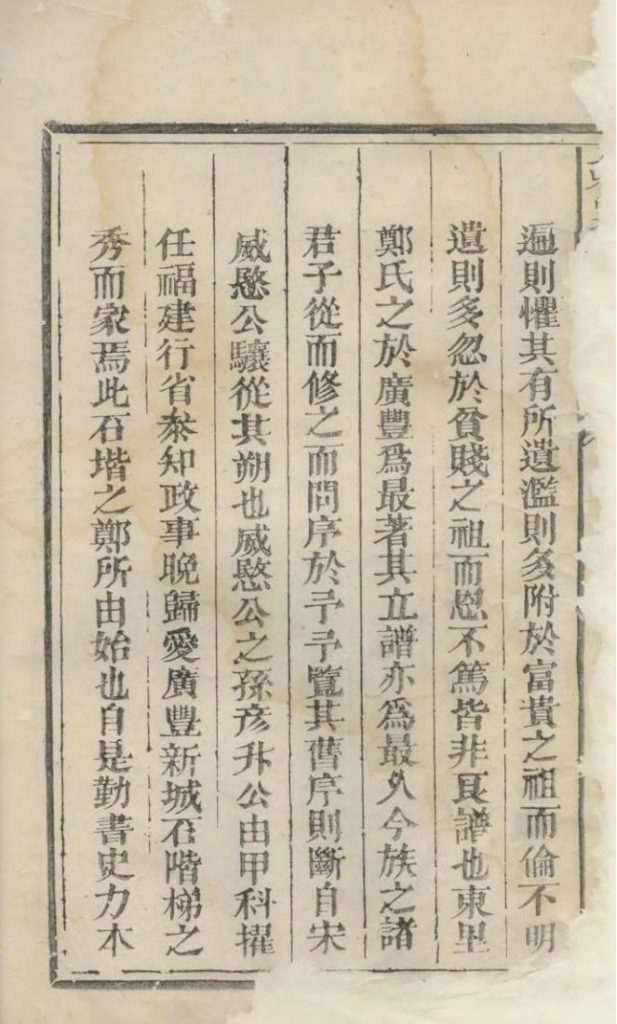 遍則懼其有所遺濫則多附於富貴之祖而倫不明
遺則多忽於貧賤之祖而恩不篤皆非良譜也東里
鄭氏之於廣豐為最著其立譜亦為最久今族之諸
君子從而修之而問序於予予覽其舊序則斷自宋
威愍公驤從其朔也威愍公之孫彥升公由甲科擢
任福建行省叅知政事晚歸愛廣豐新城石階梯之
秀而家焉此石堦之鄭所由始也自是勤書史力本